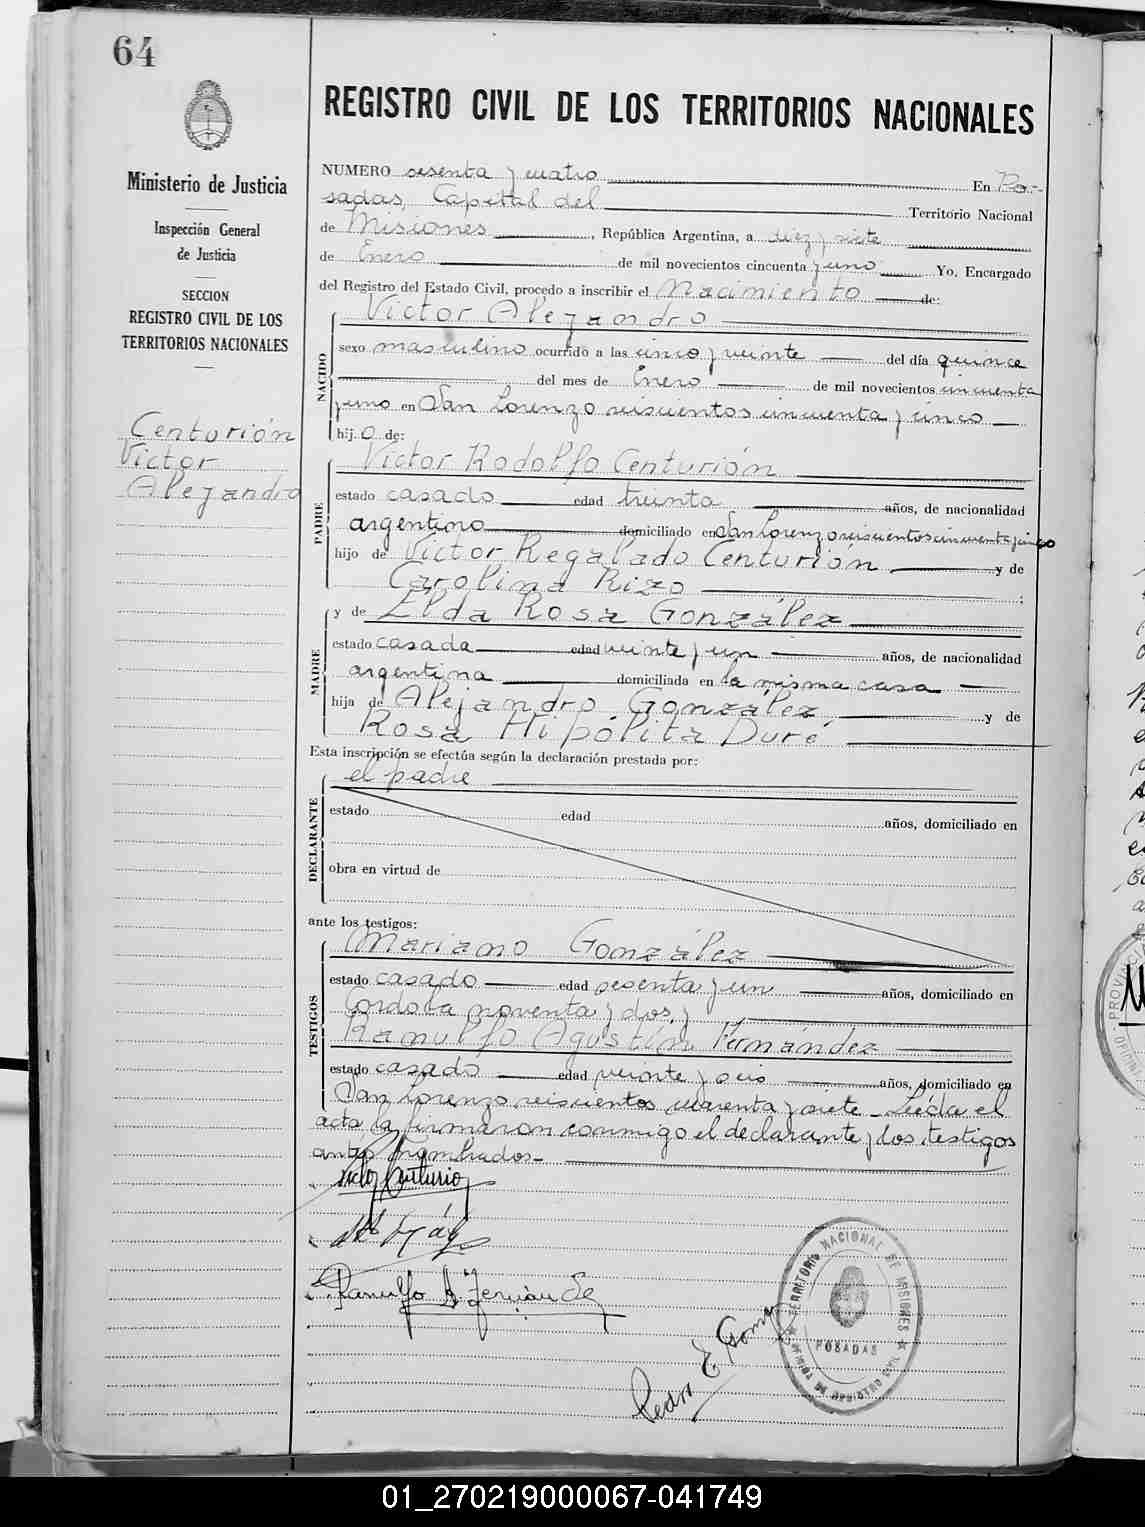 64
Ministerio de Justicia
Inspección General
de Justicia
SECCION
REGISTRO CIVIL DE LOS
TERRITORIOS NACIONALES
Centurión
Victor
Alejandro
REGISTRO CIVIL DE LOS TERRITORIOS NACIONALES
NUMERO sesenta y cuatro En Po-
sadas, Capital del Territorio Nacional
de Misiones, República Argentina, a diez y siete
de Enero de mil novecientos cincuenta y uno Yo, Encargado
del Registro del Estado Civil, procedo a inscribir el Nacimiento de:
NACIDO
Victor Alejandro
sexo masculino ocurrido a las cinco y veinte del día quince
del mes de Enero de mil novecientos cincuenta
y uno en San Lorenzo seiscientos cincuenta y cinco
hij.o de:
PADRE
Victor Rodolfo Centurión
estado casado edad treinta años, de nacionalidad
argentino domiciliado en San Lorenzo seiscientos cincuenta y cinco
hijo de Victor Regalado Centurión y de
Carolina Rizo ;
MADRE
y de Elda Rosa González
estado casada edad veinte y un años, de nacionalidad
argentina domiciliada en la misma casa
hija de Alejandro González, y de
Rosa Hipólita Duré
Esta inscripción se efectúa según la declaración prestada por:
el padre
DECLARANTE
estado edad años, domiciliado en
obra en virtud de
ante los testigos:
TESTIGOS
Mariano González
estado casado edad sesenta y un años, domiciliado en
Córdoba noventa y dos, y
Ranulfo Agustin Fernández
estado casado edad veinte y seis años, domiciliado en
San Lorenzo seiscientos cuarenta y siete - Leída el
acta, la firmaron conmigo el declarante y los testigos
antes nombrados-
Victor Centurion
Ranulfo A. Fernández
Pedro E Gomez
TERRITORIO NACIONAL DE MISIONES
POSADAS
PROVINCIA
01_270219000067-041749